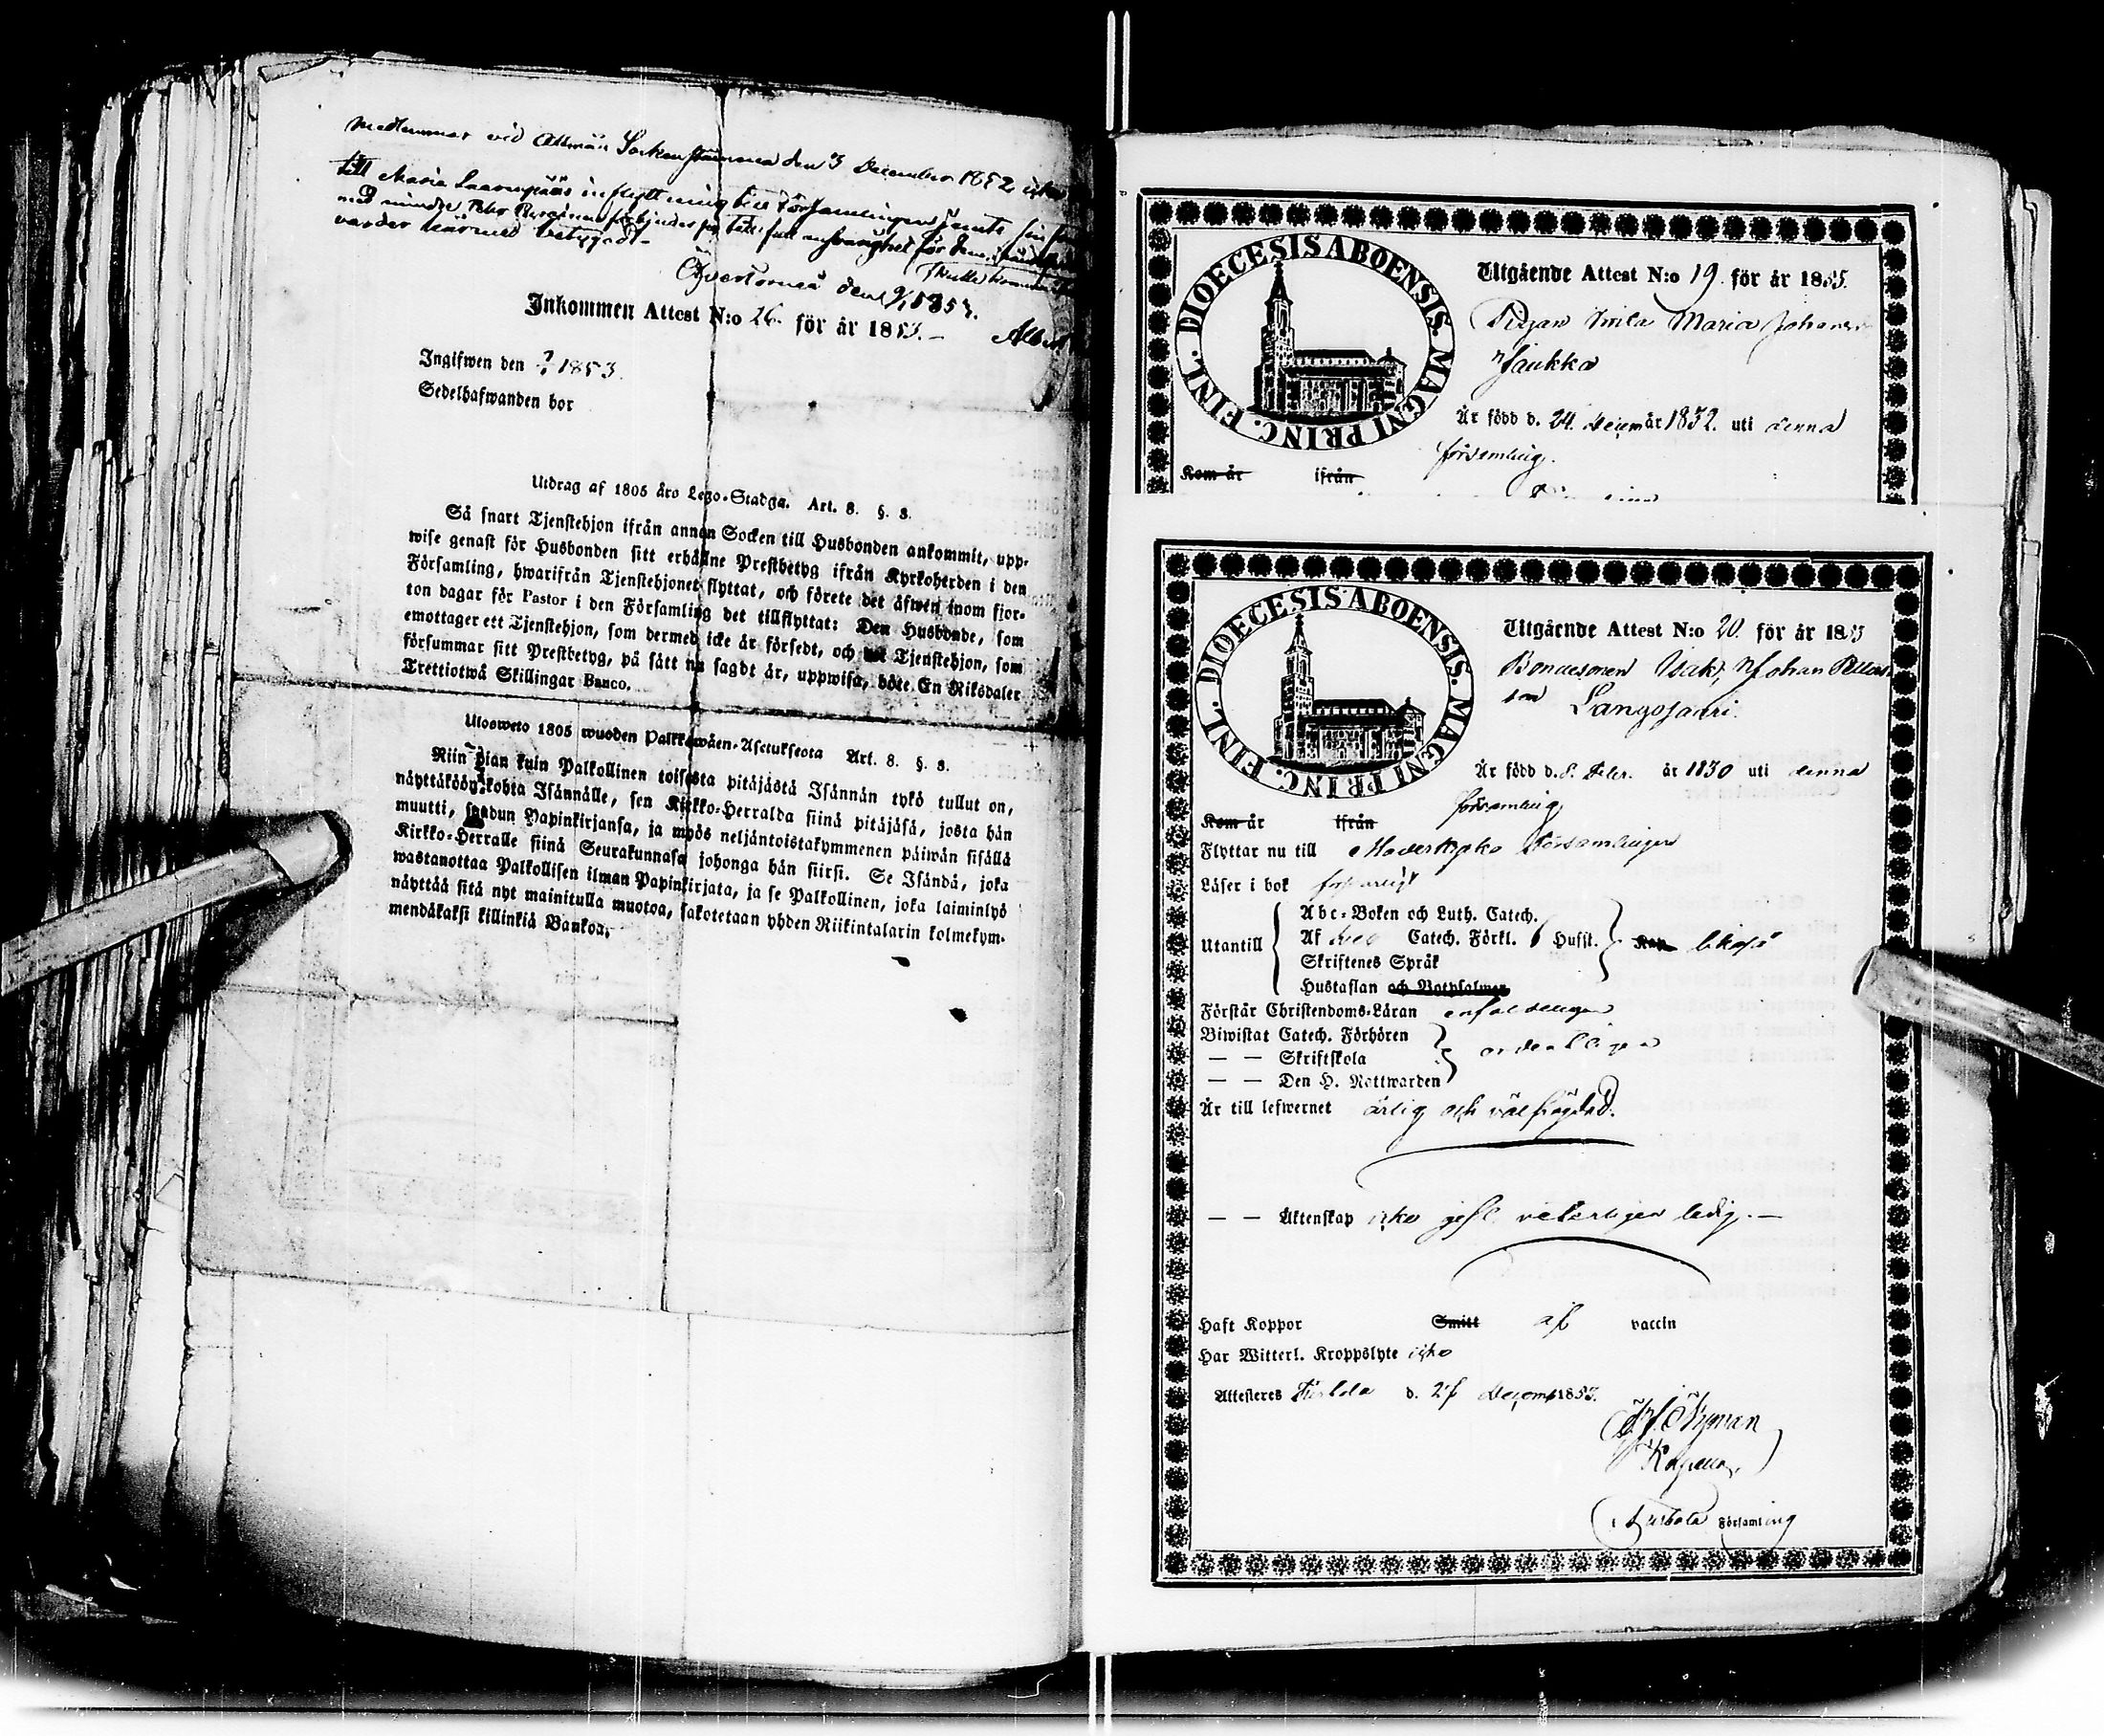 medlemmar vid Allmän Sockenstämma den 3 December 1852 icke
till Maria inflyttning till Församlingen jemte sin
med mindre Petter förbinder sig ansvarighet för dem,
varder härmed betygadt.
Öfvertorneå den 9/1 1853.
Inkommen Attest N:o 26. för år 1853.
Albert
Ingifwen den ? 1853.
Sedelhafwanden bor
Utdrag af 1805 års Lego-Stadga. Art. 8. §. 8.
Så snart Tjenstehjon ifrån annan Socken till Husbonden ankommit, upp-
wise genast för Husbonden sitt erhållne Prestbetyg ifrån Kyrkoherden i den
Församling, hwarifrån Tjenstehjonet flyttat, och förete det äfwen inom fjor-
ton dagar för Pastor i den Församling det tillflyttat: Den Husbonde, som
emottager ett Tjenstehjon, som dermed icke är försedt, och Tjenstehjon, som
försummar sitt Prestbetyg, på sätt nu sagdt är, uppwisa, böte En Riksdaler
Trettiotwå Skillingar Banco.
Ulosweto 1805 wuoden Palkkawäen-Asetuksesta Art. 8. §. 8.
Niin pian kuin Palkollinen toisesta pitäjästä Isännän tykö tullut on,
näyttäköön kohta Isännälle, sen Kirkko-Herralda siinä pitäjäsä, josta hän
muutti, saadun Papinkirjansa, ja myös neljäntoistakymmenen päiwän sisällä
Kirkko-Herralle siinä Seurakunnasa johonga hän siirsi. Se Isändä, joka
wastanottaa Palkollisen ilman Papinkirjata, ja se Palkollinen, joka laiminlyö
näyttää sitä nyt mainitulla muotoa, sakotetaan yhden Riikintalarin kolmekym-
mendäkaksi killinkiä Bankoa.
DIOECESIS ABOENSIS. MAGNI PRINC. FINL.
Utgående Attest N:o 19. för år 1853.
Pigan Maria Johans
Haukka
Är född d. 24. decem år 1832. uti denna
församling.
Kom år ifrån
DIOECESIS ABOENSIS. MAGNI PRINC. FINL.
Utgående Attest N:o 20. för år 1853
Bondesonen Isak Johan
son Langojärvi.
Är född d. 8. Febr. år 1830 uti denna
församling
Kom år ifrån
Flyttar nu till Moderkyrko Församlingen
Läser i bok försvarligt
Utantill
Abc-Boken och Luth. Catech.
Af Catech. Förkl. Husit.
Skriftenes Språk
Hustaflan och Botpsalmer
likaså
Förstår Christendoms-Läran enfaldeligen
Biwistat Catech. Förhören
— — Skriftskola
— — Den H. Nattwarden
ordentligen
Är till lefwernet ärlig och välfrägdad.
— — Äktenskap icke gift veterligen ledig. —
Haft Koppor Smitt af vaccin
Har Witterl. Kroppslyte icke
Attesteres Turtola d. 27 decemb 1853.
Nyman
Turtola Församling